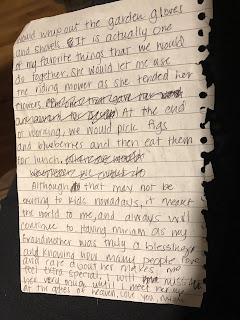 would whip out the garden gloves
and shovels. It is actually one
of my favorite things that we would
do together. She would let me use
the riding mower as she tended her
flowers.
At the end
of working, we would pick figs
and blueberries and then eat them
for lunch,
Although that may not be
exciting to kids nowadays, it meant
the world to me, and always will
continue to. Having miriam as my
grandmother was truly a blessing
and knowing how many people love
and care about her makes me
feel extra special. I will miss
her very much until I meet her
at the gates of heaven. Love you,